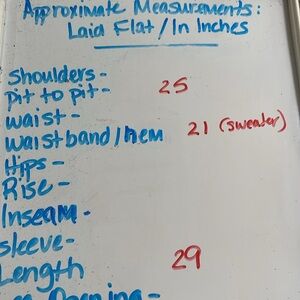 Approximate Measurements:
Laid Flat/In Inches
Shoulders-
Pit to pit- 25
Waist-
Waistband/Hem 21 (sweater)
Hips-
Rise-
Inseam-
Sleeve-
Length 29
Opening-